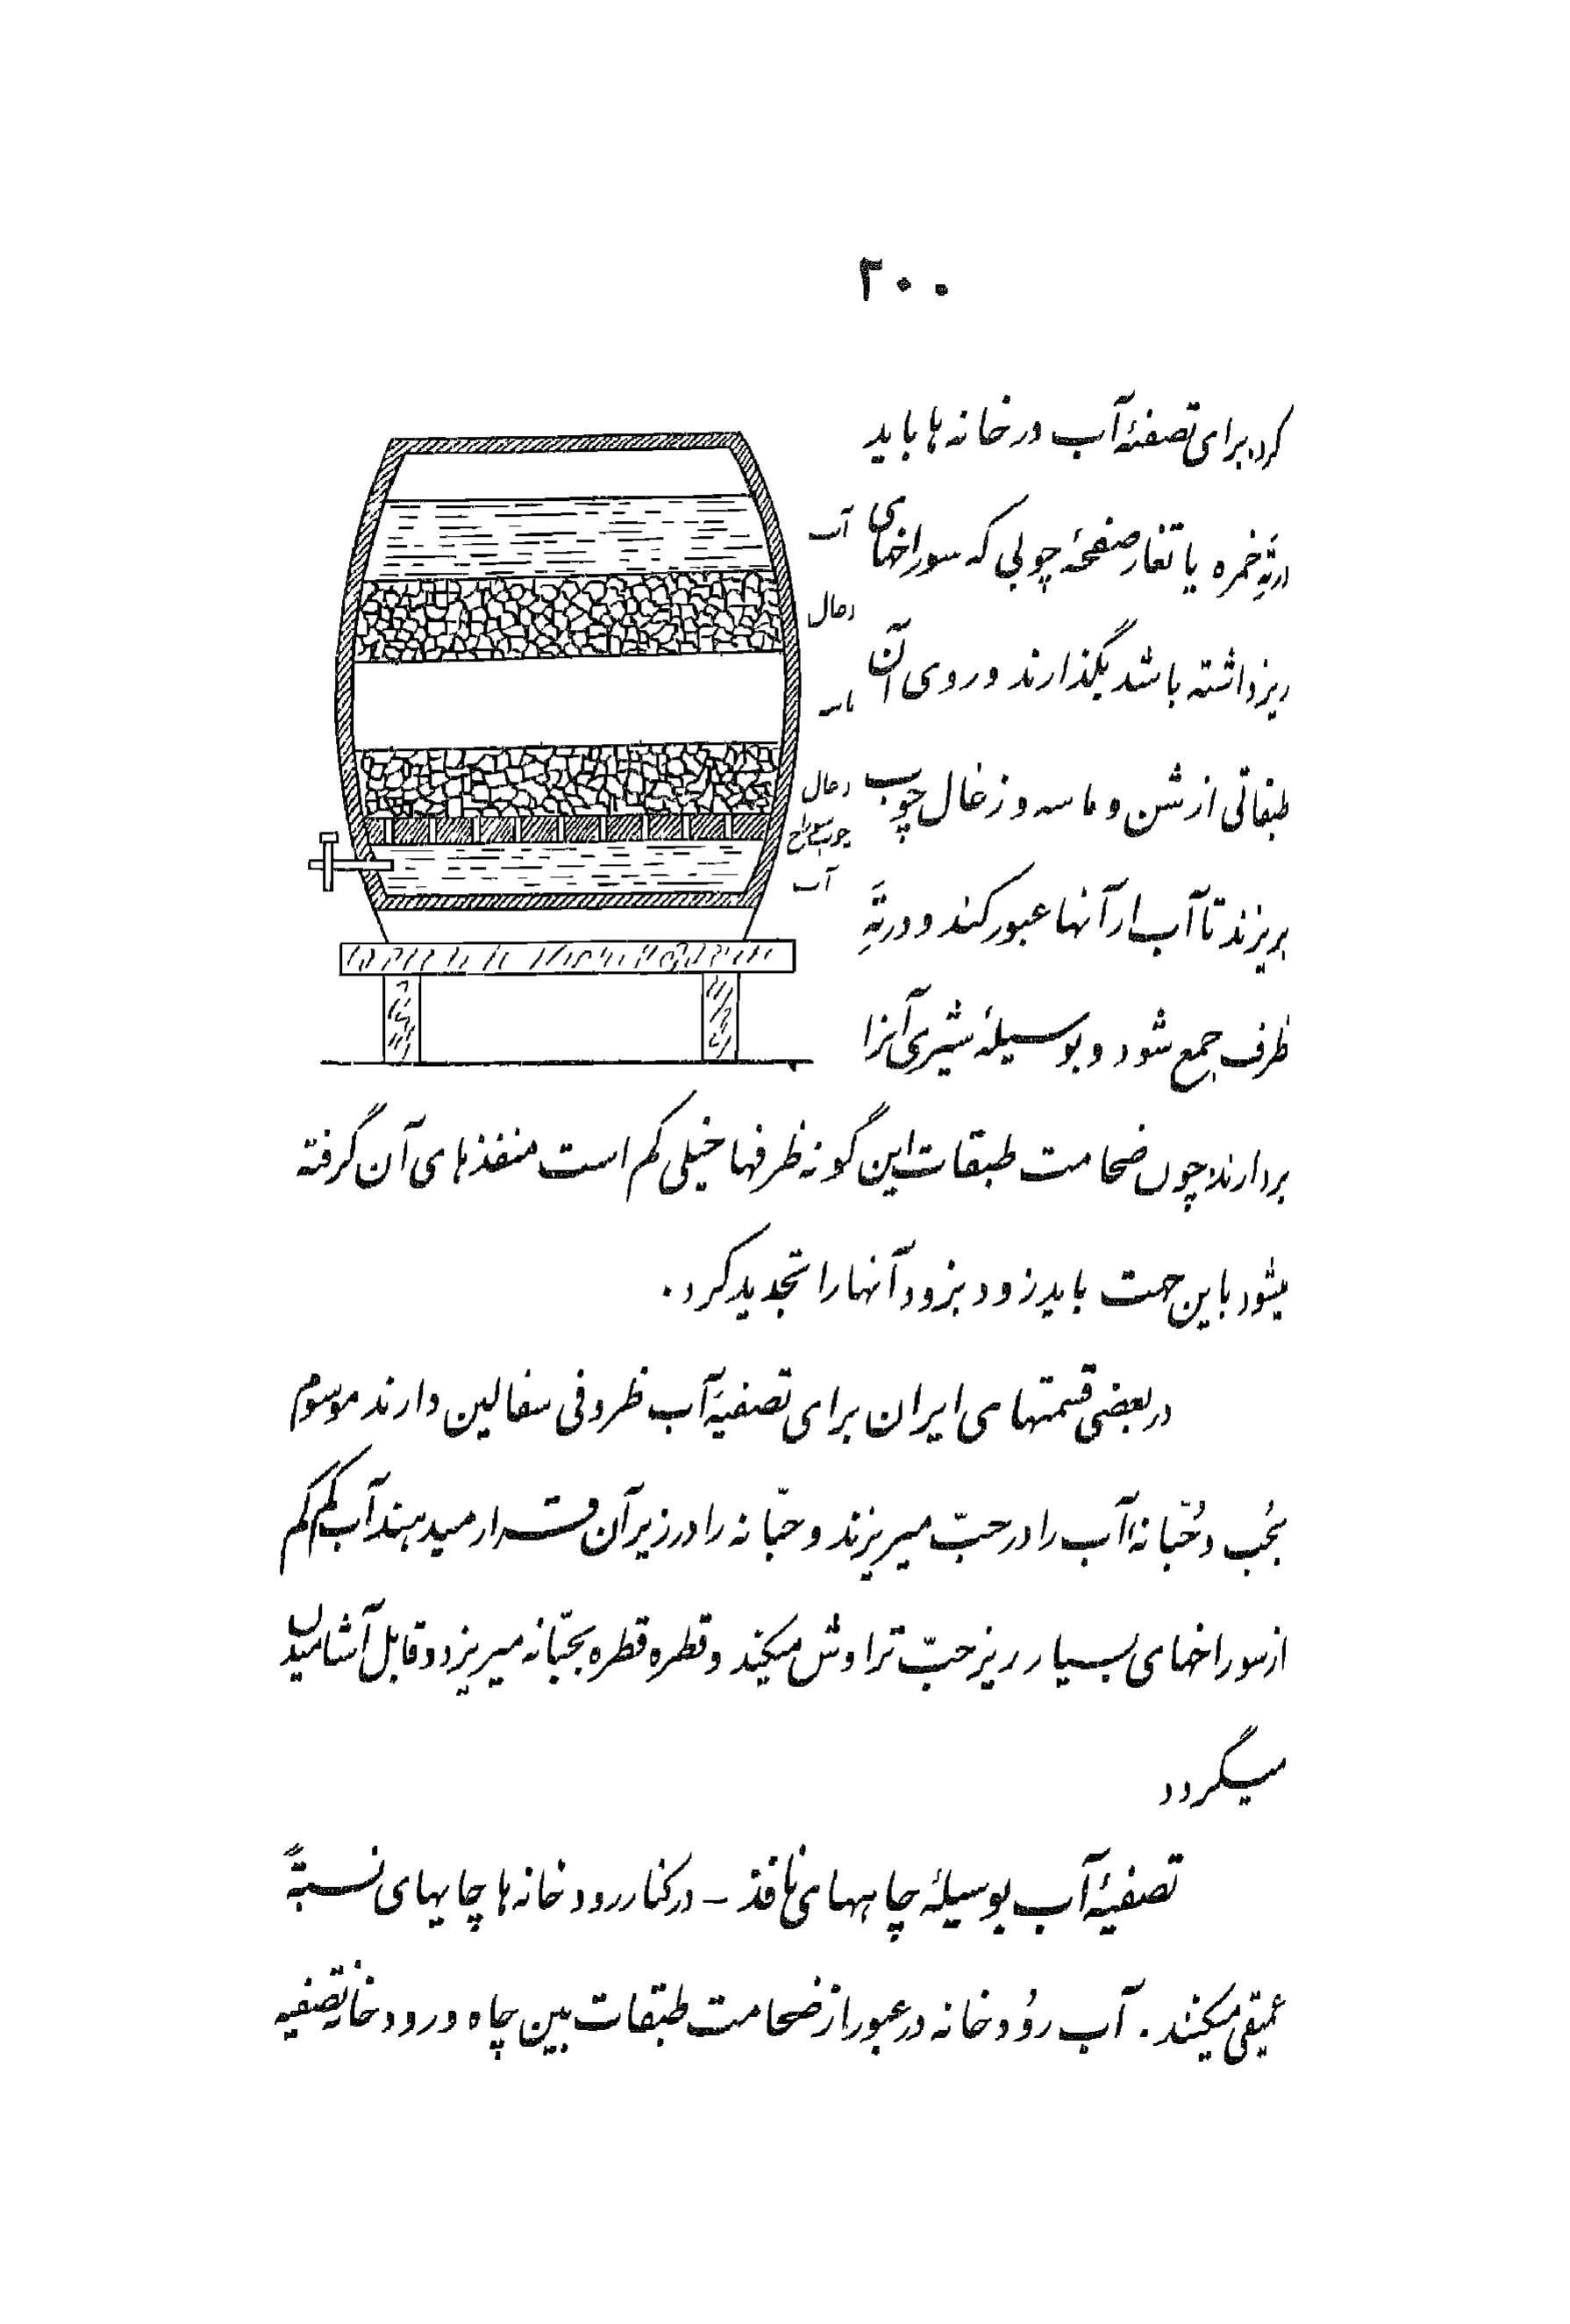 ۲۰۰
کرد. برای تصفیهٔ آب در خانه ها باید
در تهِ خمره یا تغار صفحهٔ چوبی که سوراخهای
ریز داشته باشد بگذارند و روی آن
طبقاتی از شن و ماسه و زغال چوب
بریزند تا آب از آنها عبور کند و در تهِ
ظرف جمع شود و بوسیلهٔ شیری آنرا
بردارند. چون ضخامت طبقات این گونه ظرفها خیلی کم است منفذهای آن گرفته
میشود باین جهت باید زود بزود آنها را تجدید کرد.
در بعضی قسمتهای ایران برای تصفیهٔ آب ظروفی سفالین دارند موسوم
بحُب و حُبّانه. آب را در حبّ میریزند و حبّانه را در زیر آن قرار میدهند آب کم کم
از سوراخهای بسیار ریز حبّ تراوش میکند و قطره قطره بحبّانه میریزد و قابل آشامیدن
میگردد
تصفیهٔ آب بوسیلهٔ چاههای نافذ – در کنار رودخانه ها چاههای نسبتهً
عمیقی میکنند. آب رُودخانه در عبور از ضخامت طبقات بین چاه و رودخانه تصفیه
آب
زغال
ماسه
زغال
چوب سوراخ
آب